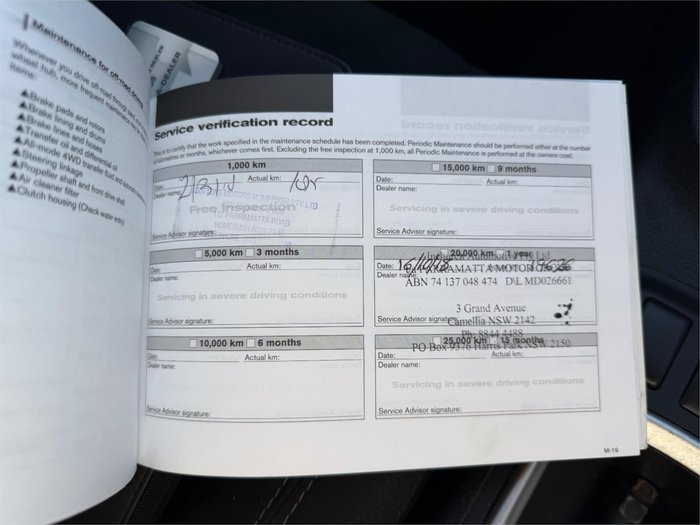 Maintenance for off-road driving
Whenever you drive off-road through
wheel hub, more frequent maintenance
items:
▲Brake pads and rotors
▲Brake lining and drums
▲Brake lines and hoses
▲Transfer oil and differential oil
▲All-mode 4WD transfer fluid and
▲Steering linkage
▲Propeller shaft and front drive shaft
▲Air cleaner filter
▲Clutch housing (Check water entry)
DEALER
Service verification record
This is to certify that the work specified in the maintenance schedule has been completed. Periodic Maintenance should be performed either at the number
of kilometres or months, whichever comes first. Excluding the free inspection at 1,000 km, all Periodic Maintenance is performed at the owners cost.
1,000 km
Date: Actual km:
Dealer name:
MOTORS HOMEBUSH PTY LTD
Free inspection
PARRAMATTA ROAD
HOMEBUSH NSW
Service Advisor signature:
5,000 km 3 months
Date: Actual km:
Dealer name:
Servicing in severe driving conditions
Service Advisor signature:
10,000 km 6 months
Date: Actual km:
Dealer name:
Service Advisor signature:
15,000 km 9 months
Date: Actual km:
Dealer name:
Servicing in severe driving conditions
Service Advisor signature:
20,000 km 1 year
Date:
Dealer name:
PARRAMATTA MOTOR
ABN 74 137 048 474 D\L MD026661
3 Grand Avenue
Service Advisor signature:
Camellia NSW 2142
Ph: 8844 4488
PO Box 9376 Harris Park NSW 2150
25,000 km 15 months
Date: Actual km:
Dealer name:
Servicing in severe driving conditions
Service Advisor signature:
M-19